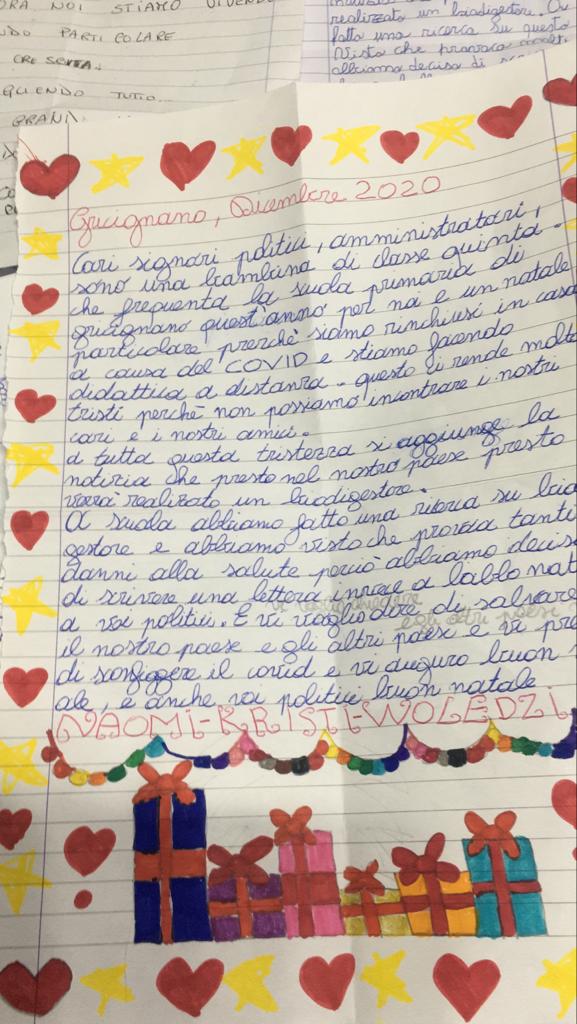 ORA NOI STIAMO
DO PARTICOLARE
CRESCITA.
TUTTO...
GRANI
realizzato un biodigestore.
fatto una ricerca su questo
Visto che provoca
abbiamo deciso di
Gricignano, Dicembre 2020
Cari signori politici, amministratori,
sono una bambina di classe quinta
che frequenta la scuola primaria di
gricignano quest'anno per na e un natale
particolare perchè siamo rinchiusi in casa
a causa del COVID e stiamo facendo
didattica a distanza. questo ci rende molto
tristi perchè non possiamo incontrare i nostri
cari e i nostri amici.
a tutta questa tristezza si aggiunge la
notizia che presto nel nostro paese presto
verrà realizato un biodigestore.
A scuola abbiamo fatto una ricerca su bio
gestore e abbiamo visto che provoca tanti
danni alla salute perciò abbiamo deciso
di scrivere una lettera invece a babbo nat
a voi politici. E vi voglio dire di salvare
il nostro paese e gli altri paesi e vi pre
di sconfiggere il covid e vi auguro buon
ale, e anche voi politici buon natale
NAOMI-KRISTI-WOLEDZI